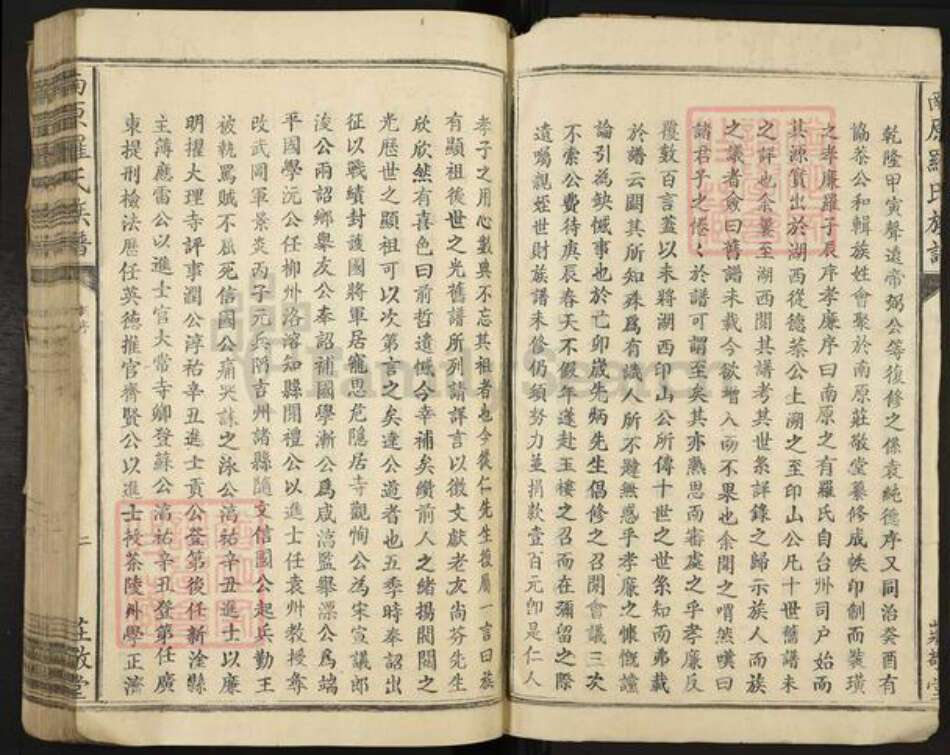 南原羅氏族譜
莊敬堂
乾隆甲寅聲遠帝弼公等復修之係袁純德序又同治癸酉有
協恭公和輯族姓會聚於南原莊敬堂纂修成帙印創而裝璜
之孝廉羅子辰序孝廉序曰南原之有羅氏自台州司户始而
其源實出於湖西從德恭公上溯之至印山公凡十世舊譜未
之評也余曩至湖西閱其譜考其世系詳錄之歸示族人而族
之議者僉曰舊譜未載今欲增入而不果也余聞之喟然嘆曰
諸君子之惓惓於譜可謂至矣其亦熟思而審處之乎孝廉反
覆數百言蓋以未將湖西印山公所傳十世之世系知而弗載
於譜云闕其所知殊為有識人所不韙無惑乎孝廉之慷慨讜
論引為缺憾事也於亡卯歲先炳先生倡修之召開會議三次
不索公費待庚辰春天不假年遂赴玉樓之召而在彌留之際
遺囑親姪世財族譜未修仍須努力並捐款壹百元卽是仁人
孝子之用心數典不忘其祖者也今從仁先生復屬一言曰族
有顯祖後世之光舊譜所列請詳言以徵文獻老友尚芬先生
欣欣然有喜色曰前哲遺憾今幸補矣纘前人之緒揚閥閱之
光歷世之顯祖可以次第言之矣達公遊者也五季時奉詔出
征以戰績封護國將軍居寵思危隱居寺觀恂公為宋宣議郎
浚公兩詔鄉舉友公奉詔補國學漸公為咸湻監舉漂公為端
平國學沅公任柳州洛溶知縣開禮公以進士任袁州教授奪
改武岡軍景炎丙子元兵陷吉州諸縣隨文信國公起兵勤王
被執罵賊不屈死信國公痛哭誄之泳公湻祐辛丑進士以廉
明擢大理寺評事潤公淳祐辛丑進士貢公登第後任新淦縣
主薄應雷公以進士官大常寺卿登蘇公湻祐辛丑登第任廣
東提刑檢法歷任英德推官齊賢公以進士授茶陵州學正濟
南原羅氏族譜
二
莊敬堂
FamilySearch